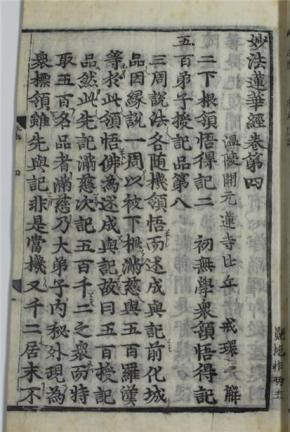 妙法蓮華經卷第四
溫陵開元蓮寺比丘 戒環 解
二下根領悟得記二 初無學衆領悟得記
五百弟子授記品第八
三周說法各隨機領悟而述成與記前化城
品因緣說一周以被下根滿慈與五百羅漢
等於此領悟佛爲述成與記故曰五百授記
品然此先記滿慈次記五百千二之衆而特
取五百名品者滿慈乃大弟子內秘外現爲
衆標領雖先與記非是當機又千二居末不